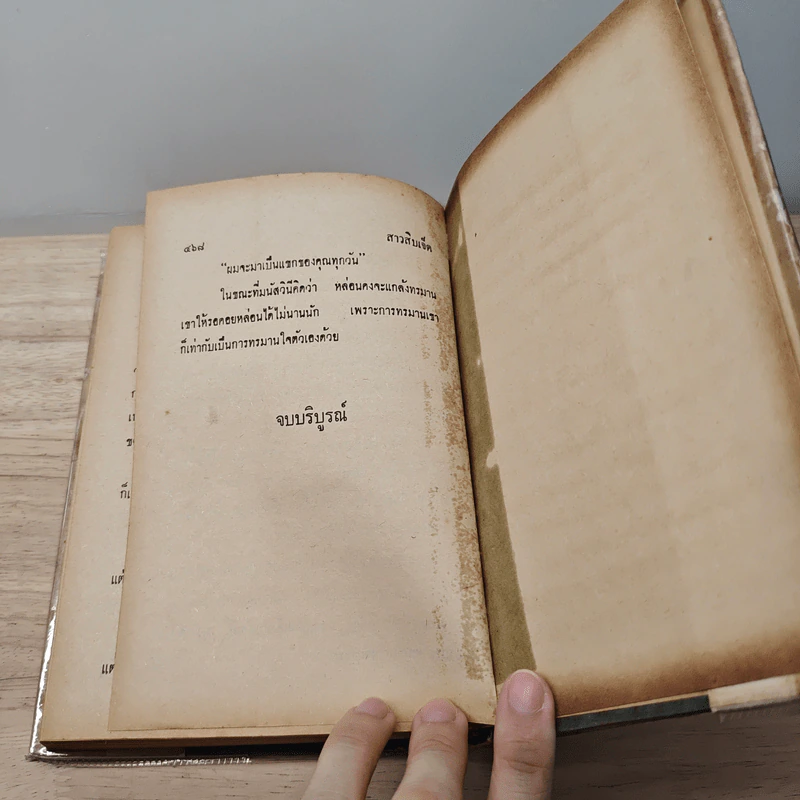 ๔๖๘ สาวสิบเจ็ด
“ผมจะมาเป็นแขกของคุณทุกวัน”
ในขณะที่มนัสวินีคิดว่า หล่อนคงจะแกล้งทรมาน
เขาให้รอคอยหล่อนได้ไม่นานนัก เพราะการทรมานเขา
ก็เท่ากับเป็นการทรมานใจตัวเองด้วย
จบบริบูรณ์